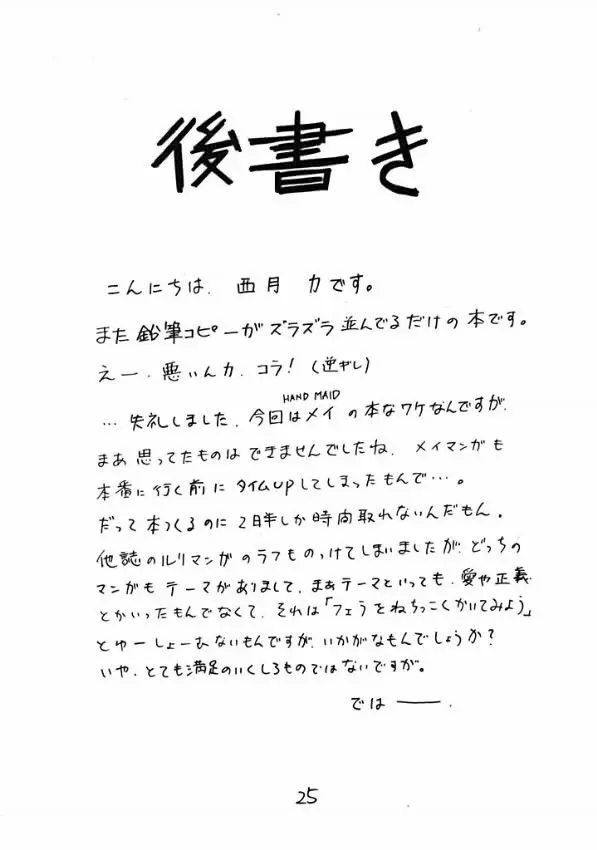 後書き
こんにちは. 西月 力です。
また鉛筆コピーがズラズラ並んでるだけの本です。
えー. 悪いんカ. コラ! (逆ギレ)
HAND MAID
… 失礼しました. 今回はメイの本なワケなんですが.
まあ思ってたものはできませんでしたね. メイマンガも
本番に行く前にタイムupしてしまったもんで…。
だって本つくるのに2日半しか時間取れないんだもん.
他誌のルリマンガのラフものっけてしまいましたが. どっちの
マンガもテーマがありまして. まぁテーマといっても. 愛や正義
とかいったもんでなくて. それは「フェラをねちっこくかいてみよう」
とゆーしょーもないもんですが. いかがなもんでしょうか?
いや. とても満足のいくしろものではないですが。
では ―.
25